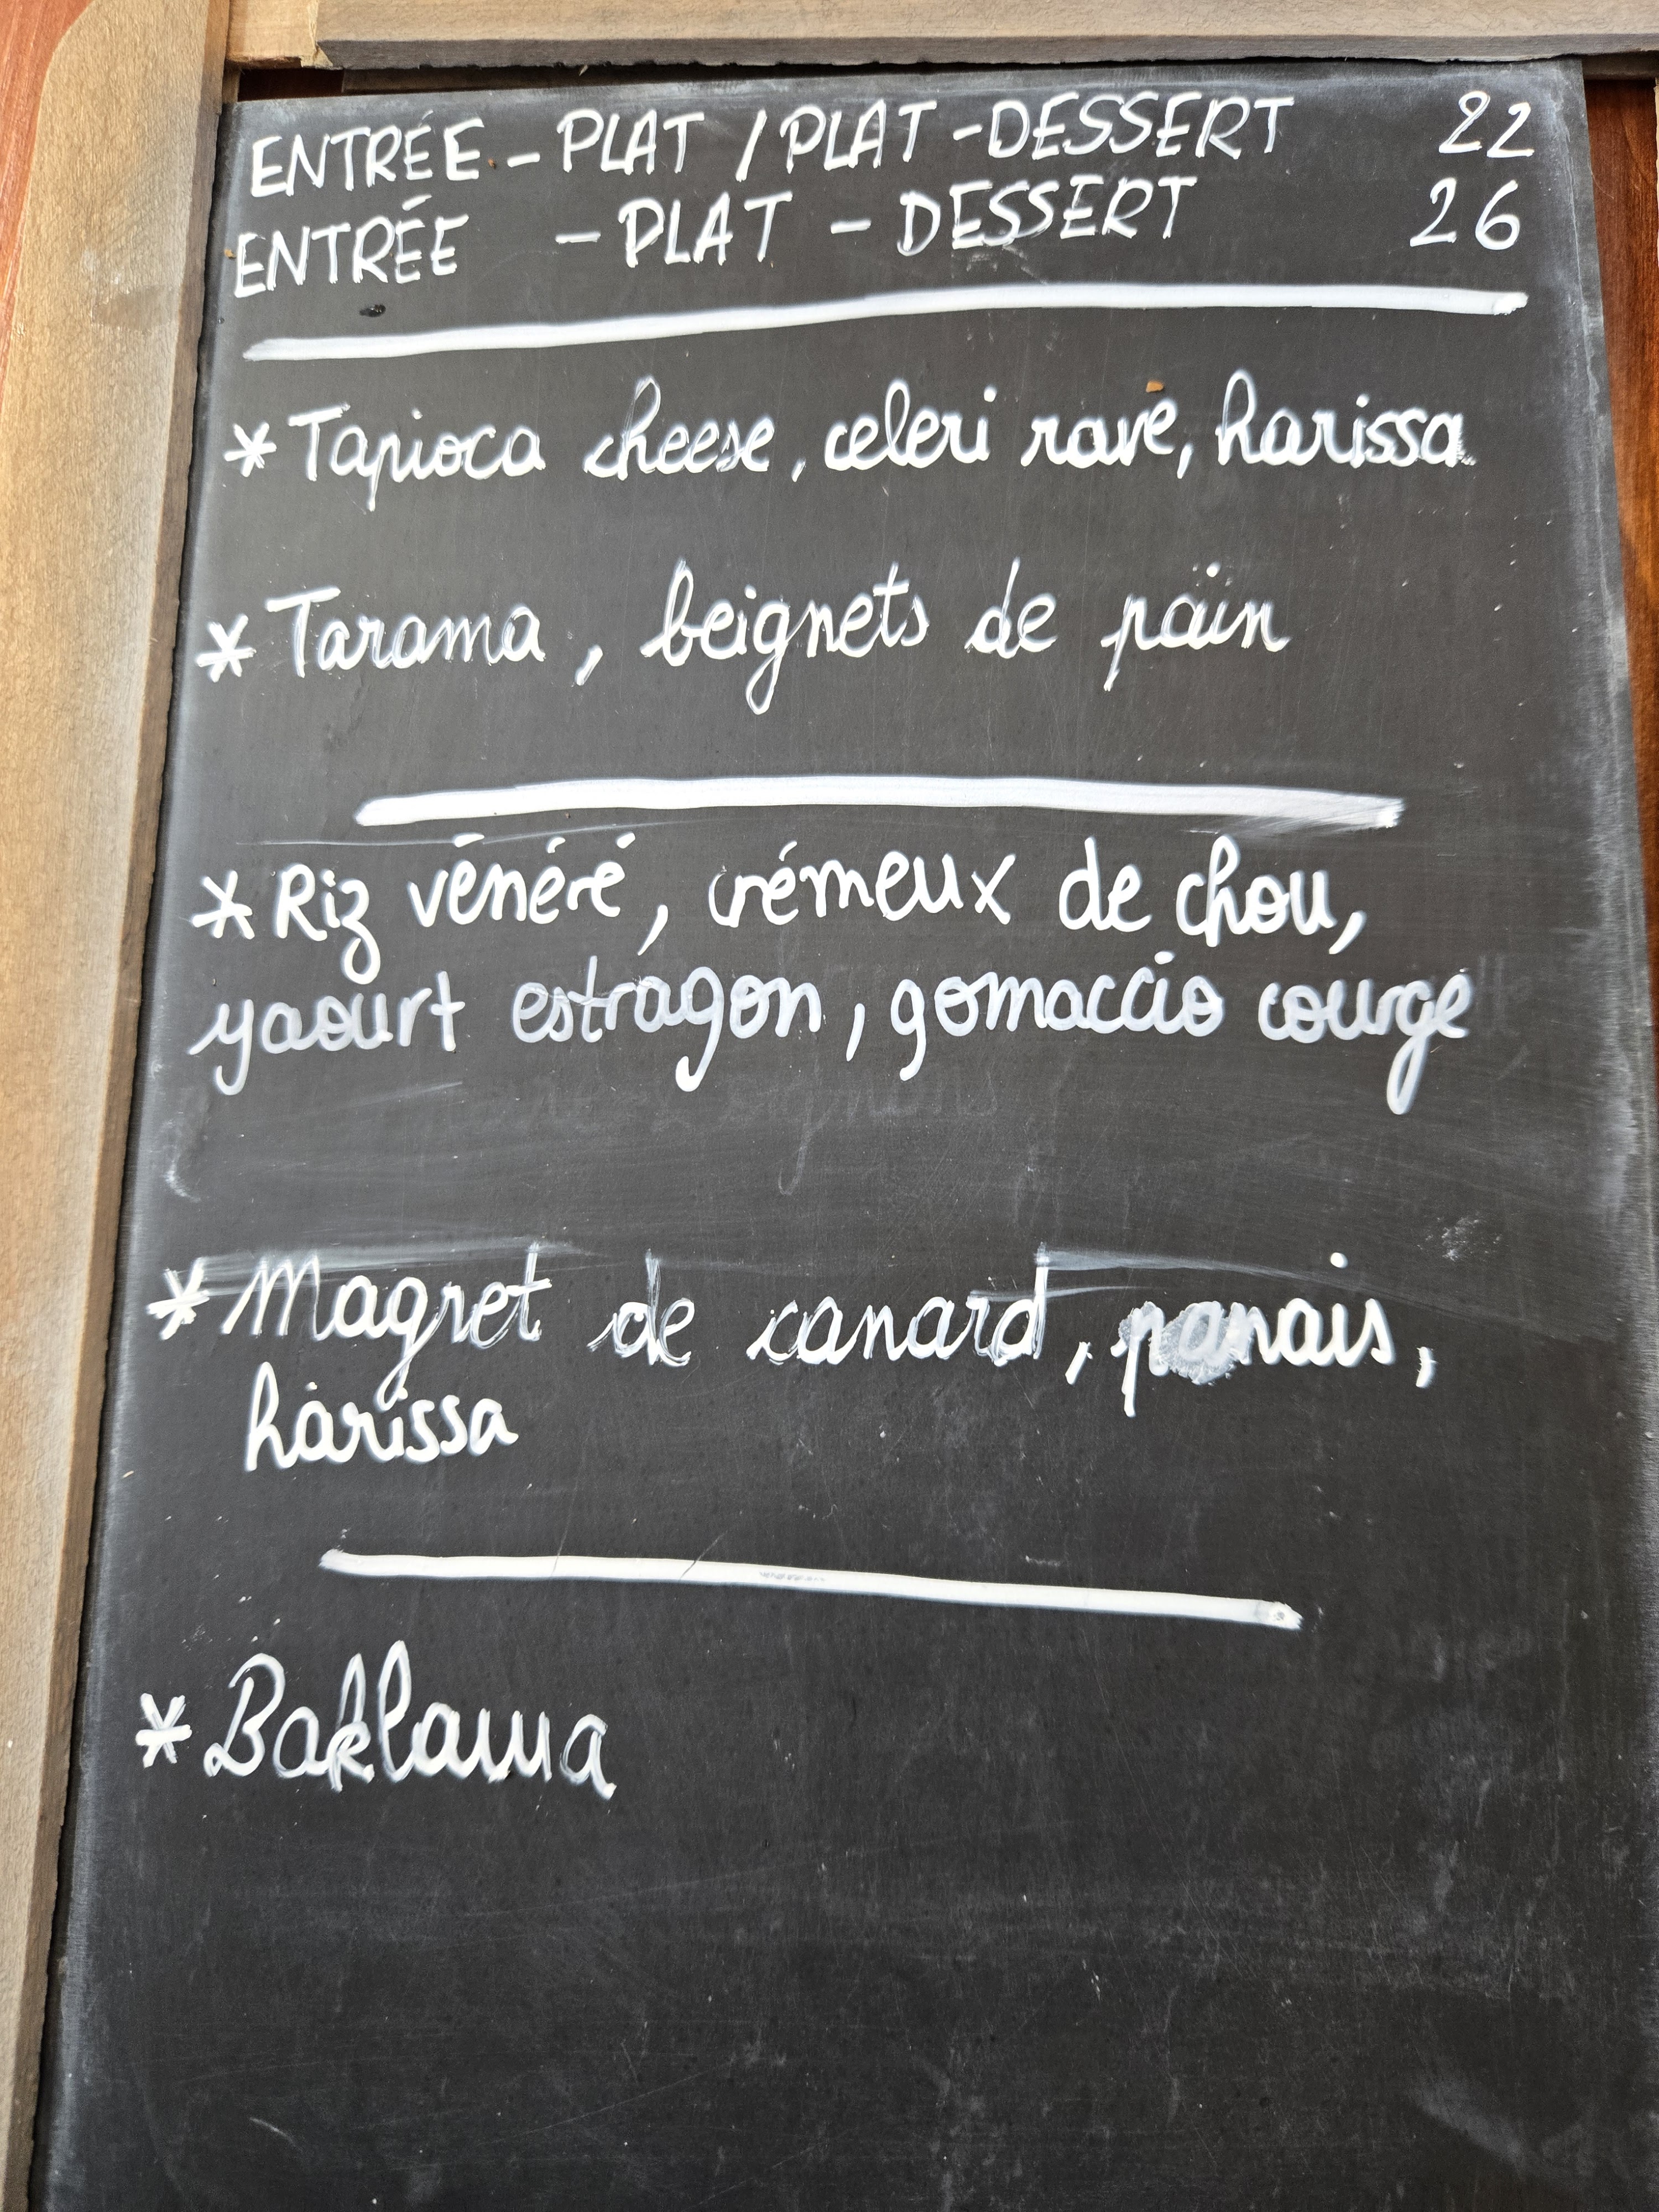 ENTRÉE - PLAT / PLAT - DESSERT 22
ENTRÉE - PLAT - DESSERT 26
* Tapioca cheese, celeri rave, harissa
* Tarama, beignets de pain
* Riz vénéré, crémeux de chou,
yaourt estragon, gomaccio courge
* Magret de canard, panais,
harissa
* Baklawa